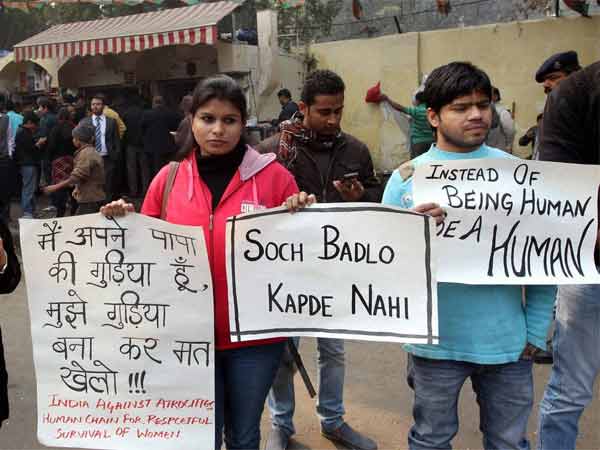 मैं अपने पापा
की गुड़िया हूँ,
मुझे गुड़िया
बना कर मत
खेलो !!!
INDIA AGAINST ATROCITIES
HUMAN CHAIN FOR RESPECTFUL
SURVIVAL OF WOMEN
SOCH BADLO
KAPDE NAHI
INSTEAD OF
BEING HUMAN
BE A HUMAN